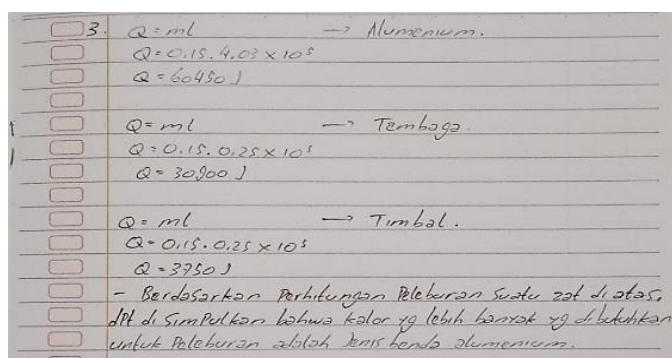 3. Q = ml → Alumenium.
Q = 0.15 . 4.03 x 10⁵
Q = 60450 J
Q = ml → Tembaga.
Q = 0.15 . 0.25 x 10⁵
Q = 30900 J
Q = ml → Timbal.
Q = 0.15 . 0.25 x 10⁵
Q = 3750 J
- Berdasarkan Perhitungan Peleburan Suatu zat di atas,
dpt di simpulkan bahwa kalor yg lebih banyak yg dibutuhkan
untuk Peleburan adalah Jenis benda alumenium.